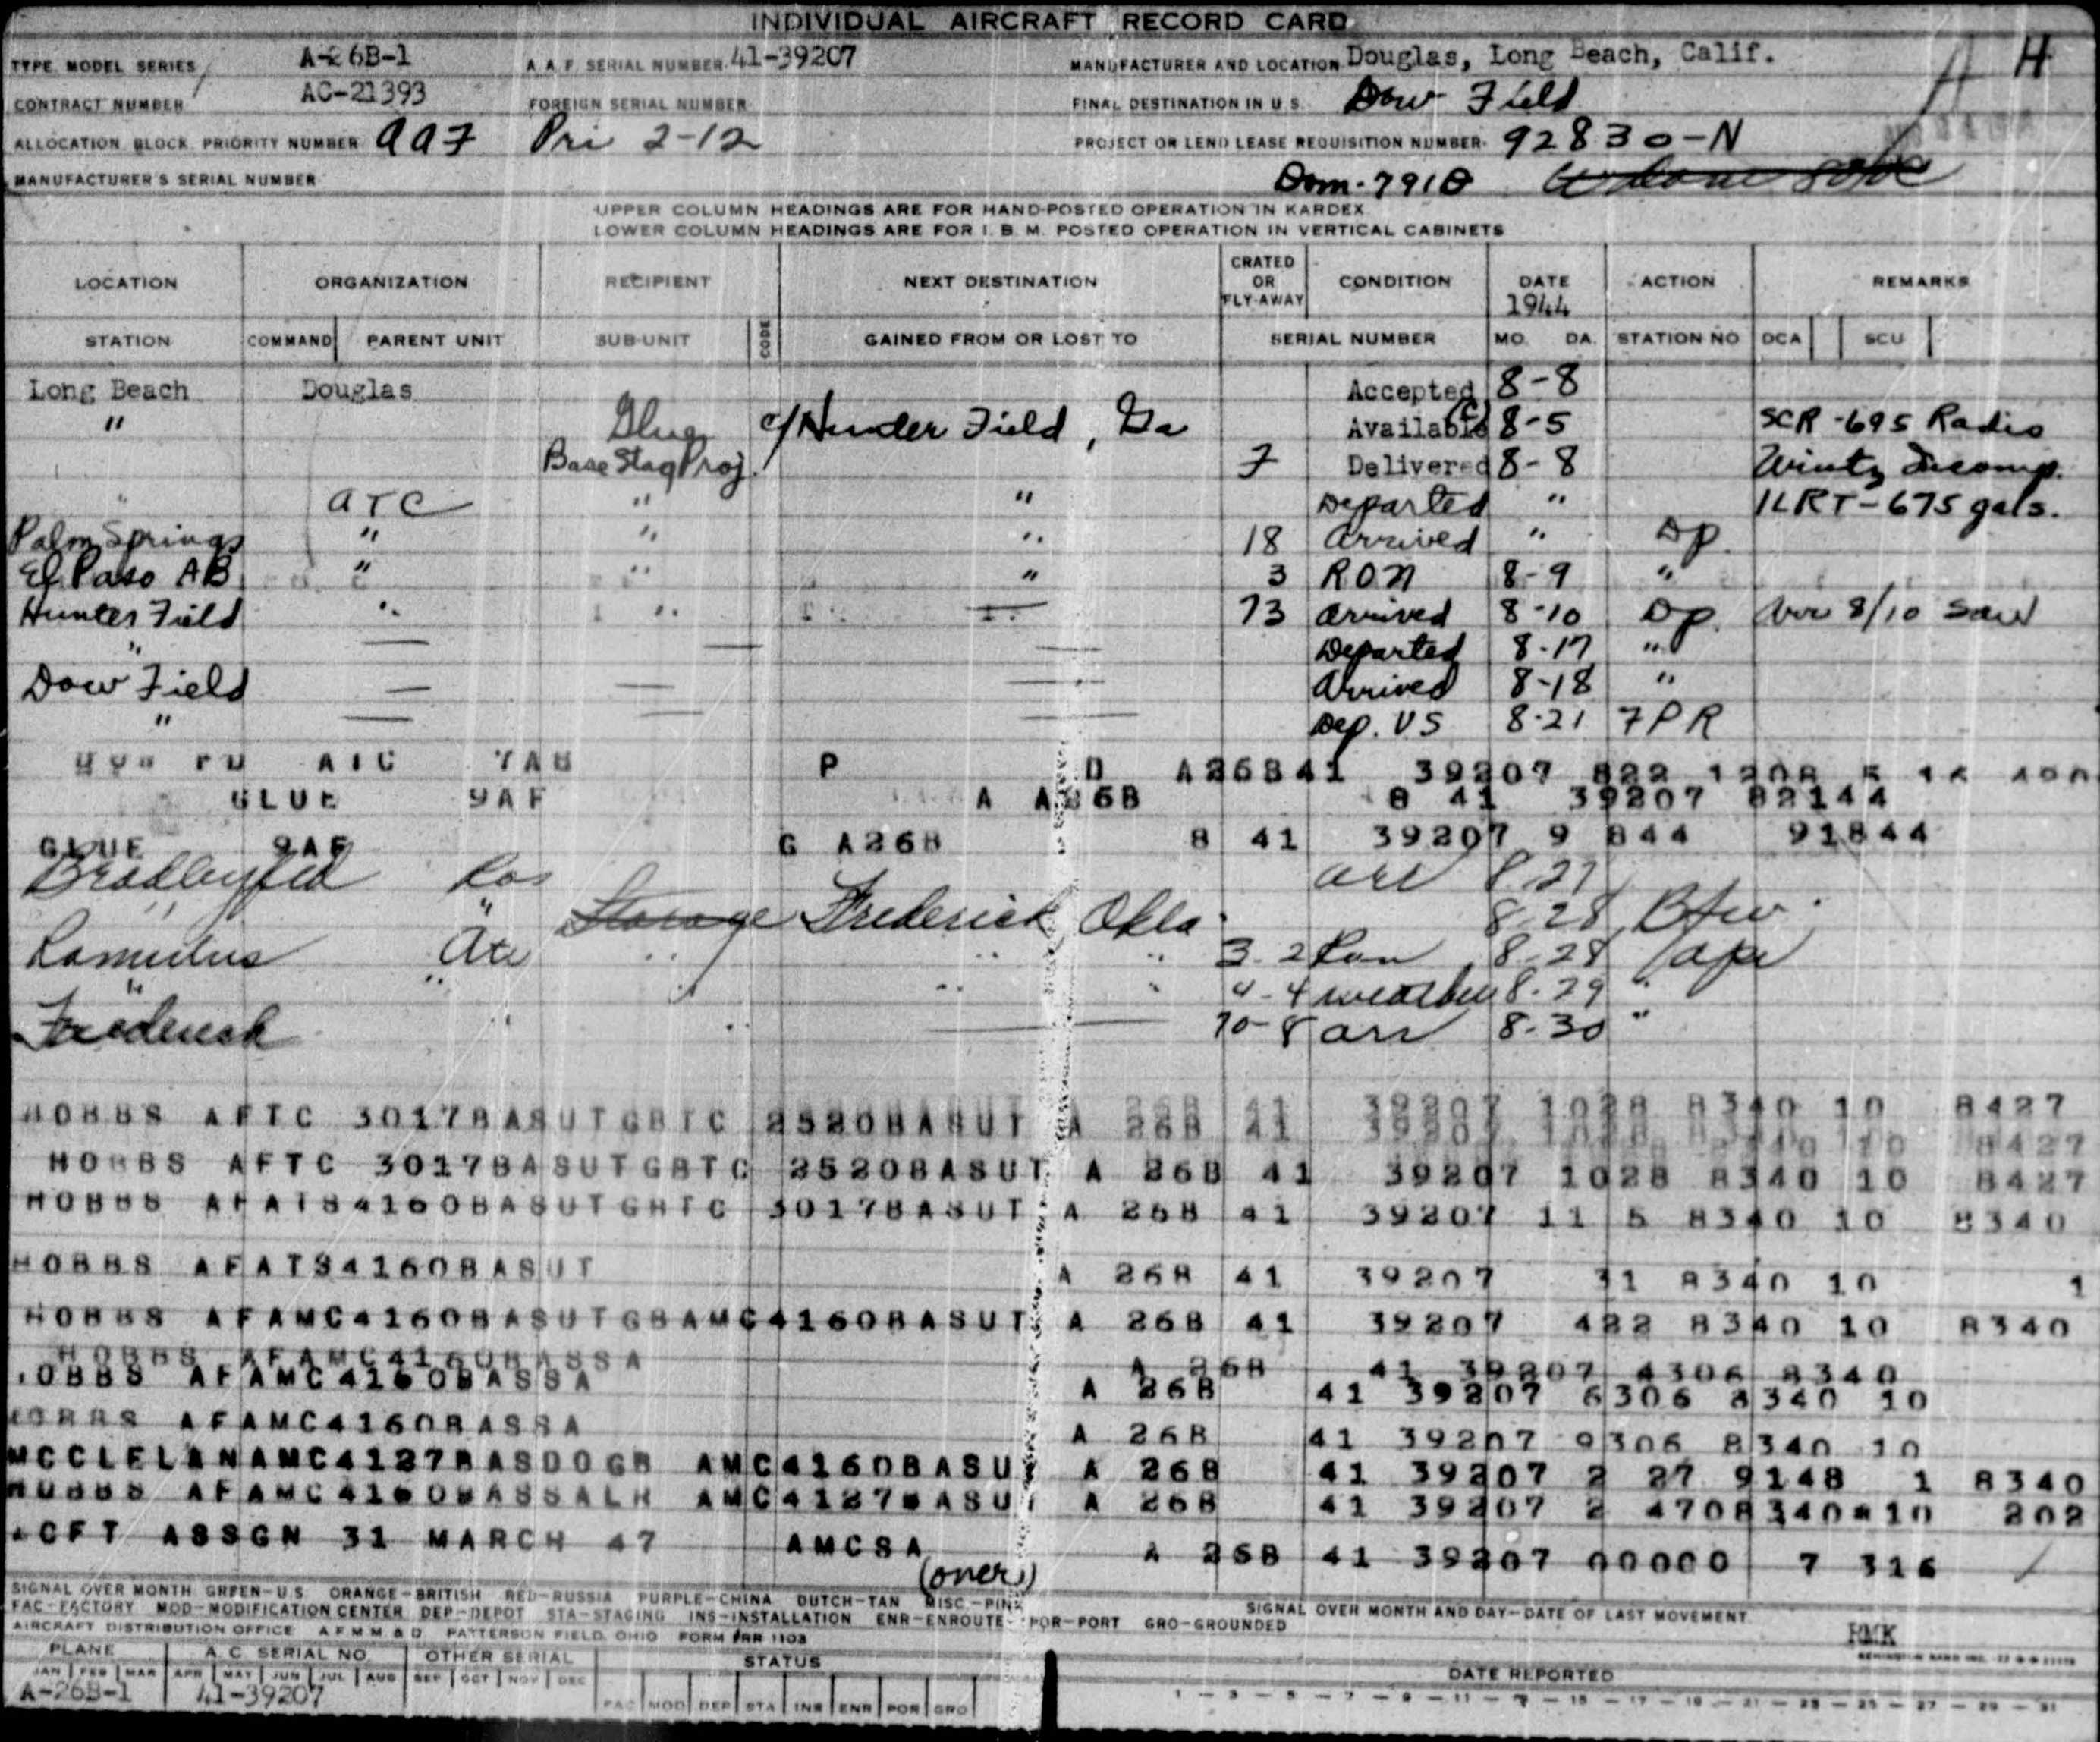 INDIVIDUAL AIRCRAFT RECORD CARD
TYPE MODEL SERIES A-26B-1 A.A.F. SERIAL NUMBER 41-39207 MANUFACTURER AND LOCATION Douglas, Long Beach, Calif. H
CONTRACT NUMBER AC-21393 FOREIGN SERIAL NUMBER FINAL DESTINATION IN U.S. Dow Field
ALLOCATION BLOCK PRIORITY NUMBER Pri 2-12 PROJECT OR LEND LEASE REQUISITION NUMBER 92830-N
MANUFACTURER'S SERIAL NUMBER Dom-7910
UPPER COLUMN HEADINGS ARE FOR HAND-POSTED OPERATION IN KARDEX
LOWER COLUMN HEADINGS ARE FOR I.B.M. POSTED OPERATION IN VERTICAL CABINETS
LOCATION ORGANIZATION RECIPIENT NEXT DESTINATION CRATED OR FLY-AWAY CONDITION DATE 1944 ACTION REMARKS
STATION COMMAND PARENT UNIT SUB-UNIT CODE GAINED FROM OR LOST TO SERIAL NUMBER MO. DA. STATION NO DCA SCU
Long Beach Douglas Accepted 8-8
" Glue c/Hunter Field, Ga Available (C) 8-5 SCR-695 Radio
Base Stag Proj. 7 Delivered 8-8 Wintz Incomp.
" ATC " " Departed " 1LRT-675 gals.
Palm Springs " " " 18 Arrived " Dp.
El Paso AB " " " 3 RON 8-9 "
Hunter Field " " 73 Arrived 8-10 Dp. Arr 8/10
" Departed 8-17 "
Dow Field Arrived 8-18 "
" Dep. US 8-21 7PR
ATC P D A26B41 39207 822 1208
GLUE 9AF A A26B 8 41 39207 82144
GLUE 9AF G A26B 8 41 39207 9 844 91844
Bradley Fld arr 8.27
" " Storage Frederick, Okla. 8.28
Romulus Atc " " " 3-2 Ron 8-28
" " " " 4-4 weather 8-29 "
Frederick " 10-8 arr 8-30 "
HOBBS AFTC 3017BASUTGBTC 2520BASUT A 26B 41 39207 1028 8340 10 8427
HOBBS AFTC 3017BASUTGBTC 2520BASUT A 26B 41 39207 1028 8340 10 8427
HOBBS AFATS4160BASUTGBTC 3017BASUT A 26B 41 39207 11 5 8340 10 8340
HOBBS AFATS4160BASUT A 26B 41 39207 31 8340 10 1
HOBBS AFAMC4160BASUTGBAMC4160BASUT A 26B 41 39207 422 8340 10 8340
HOBBS AFAMC4160BASSA A 26B 41 39207 4306 8340
HOBBS AFAMC4160BASSA A 26B 41 39207 6306 8340 10
HOBBS AFAMC4160BASSA A 26B 41 39207 9306 8340 10
MCCLELANAMC4127BASDOGB AMC4160BASU A 26B 41 39207 2 27 9148 1 8340
HOBBS AFAMC4160BASSALH AMC4127BASU A 26B 41 39207 2 4708340 10 202
ACFT ASSGN 31 MARCH 47 AMCSA A 26B 41 39207 00000 7 316
(over)
SIGNAL OVER MONTH GREEN-U.S. ORANGE-BRITISH RED-RUSSIA PURPLE-CHINA DUTCH-TAN MISC.-PINK
FAC-FACTORY MOD-MODIFICATION CENTER DEP-DEPOT STA-STAGING INS-INSTALLATION ENR-ENROUTE POR-PORT GRO-GROUNDED SIGNAL OVER MONTH AND DAY-DATE OF LAST MOVEMENT
AIRCRAFT DISTRIBUTION OFFICE A.F.M.M. & D. PATTERSON FIELD, OHIO FORM 1103 RMK
PLANE A C SERIAL NO. OTHER SERIAL STATUS DATE REPORTED
JAN FEB MAR APR MAY JUN JUL AUG SEP OCT NOV DEC
A-26B-1 41-39207 FAC MOD DEP STA INS ENR POR GRO 1 - 3 - 5 - 7 - 9 - 11 - 13 - 15 - 17 - 19 - 21 - 23 - 25 - 27 - 29 - 31